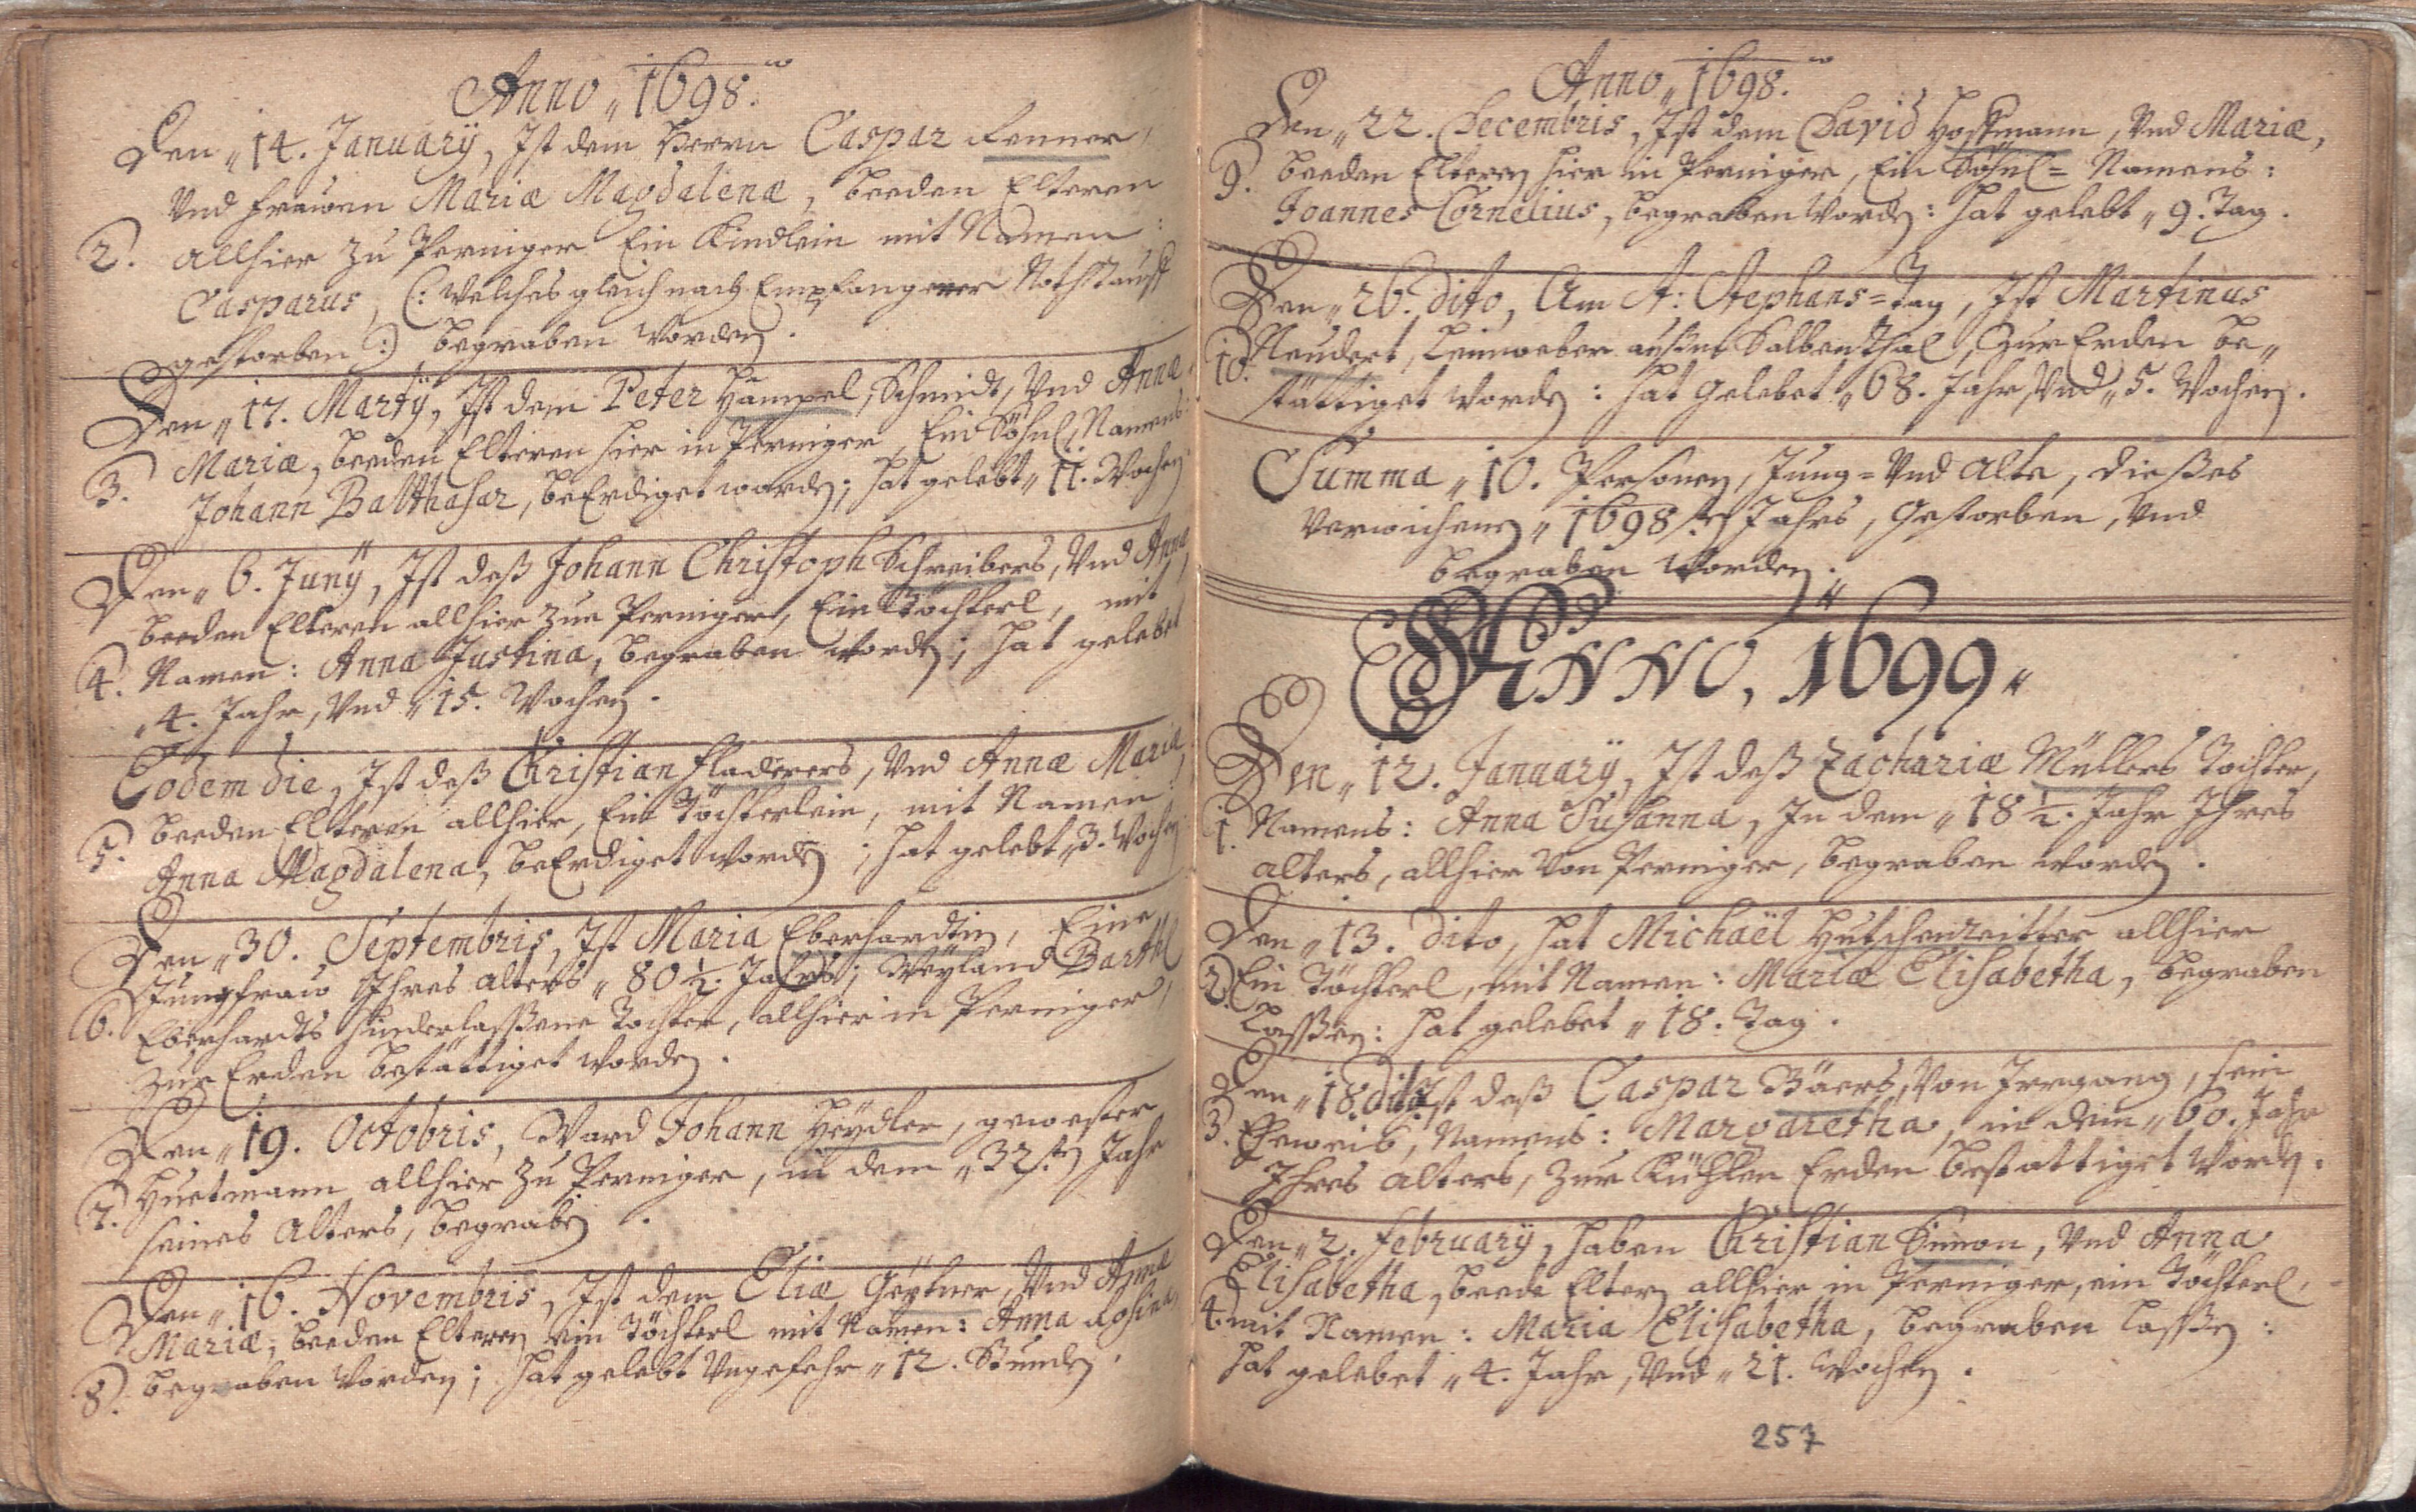 Anno „ 1698.
Den „ 14. Januarÿ, Ist dem Herrn Caspar Renner,
Vnd Frawen Mariæ Magdalenæ, beeden Elteren
2. allhier zu Perninger Ein Kindlein mit Namen:
Casparus, (: Welches gleich nach Empfangener Nothtauff
gestorben :) begraben worden.
Den „ 17. Martÿ, Ist dem Peter Hampel, Schmidt, Vnd Annæ
3. Mariæ, beeden Elteren hier in Perninger, Ein Söhnl, Namens:
Johann Balthasar, beErdiget worden; hat gelebt „ 11. Wochen
Den „ 6. Junÿ, Ist deß Johann Christoph Schreibers, Vnd Annæ
beeden Elteren allhier zue Perninger, Ein Töchterl, mit
4. Namen: Anna Justina, begraben worden; hat gelebet
„ 4. Jahr, Vnd „ 15. Wochen.
Eodem die, Ist deß Christian Fladerers, Vnd Annæ Maria
5. beeden Elteren allhier, Ein Töchterlein, mit Namen:
Anna Magdalena, beErdiget worden; hat gelebt „ 3. Wochen
Den „ 30. Septembris, Ist Maria Eberhardtin, Eine
Jungfraw Ihres alters „ 80 ½. Jahrs; Weÿland Barthl
6. Eberhardts hinderlaßene Tochter, allhier in Perninger,
zur Erden bestättiget worden.
Den „ 19. Octobris, Ward Johann Heÿdler, gewester
7. Huetmann allhier zu Perninger, in dem „ 32sten Jahr
seines Alters, begraben.
Den „ 16. Novembris, Ist dem Eliæ Geÿtner, Vnd Annæ
Mariæ, beeden Elteren ein Töchterl mit Namen: Anna Rosina,
8. begraben worden; hat gelebt Vngefehr „ 12. Stunden.
Anno „ 1698.
Den „ 22. Decembris, Ist dem David Hoffmann, Vnd Mariæ,
9. beeden Elteren hier in Perninger, Ein Söhnl = Namens:
Joannes Cornelius, begraben worden: hat gelebt „ 9. Tag.
Den „ 26. Dito, Am St: Stephans = Tag, Ist Martinus
10. Neudert, Leinweber außm Salbenthal, zur Erden be„
stättiget worden: hat gelebet „ 68. Jahr, Vnd „ 5. Wochen.
Summa „ 10. Personen, Jung = Vnd Alte, dießes
verwichenen „ 1698sten Jahrs, Gestorben, Vnd
begraben worden.
ANNO, 1699 „
Den „ 12. Januarÿ, Ist deß Zachariæ Müllers Tochter,
1. Namens: Anna Susanna, In dem „ 18 ½. Jahr Ihres
alters, allhier Von Perninger, begraben worden.
Den „ 13. Dito, hat Michaël Hutschenreitter allhier
2. Ein Töchterl, mit Namen: Mariæ Elisabetha, begraben
Laßen: hat gelebet „ 18. Tag.
Den „ 18. Dito Ist deß Caspar Bäers, Von Irrgang, sein
3. Eheweib, Namens: Margaretha, in dem „ 60. Jahr
Ihres alters, zur Kühlen Erden bestattiget worden.
Den „ 2. Februarÿ, haben Christian Simon, Vnd Anna
Elisabetha, beede Eltern allhier in Perninger, ein Töchterl,
4. mit Namen: Maria Elisabetha, begraben laßen:
hat gelebet „ 4. Jahr, Vnd „ 21. Wochen.
257